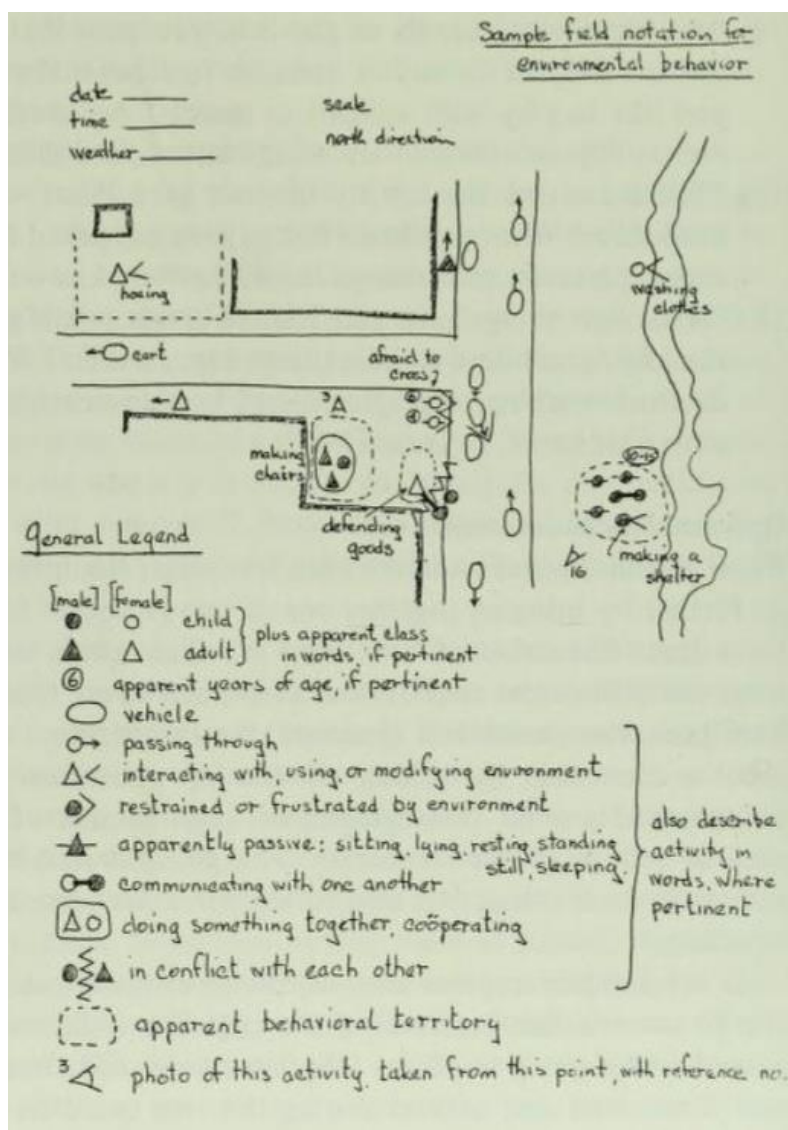 Sample field notation for
environmental behavior
date
time
weather
scale
north direction
hoeing
washing
clothes
cart
afraid to
cross?
3
6
4
making
chairs
10-12
defending
goods
making a
shelter
16
General Legend
[male] [female]
child
adult
plus apparent class
in words, if pertinent
6 apparent years of age, if pertinent
vehicle
passing through
interacting with, using, or modifying environment
restrained or frustrated by environment
apparently passive: sitting, lying, resting, standing
still, sleeping.
communicating with one another
doing something together, coöperating
in conflict with each other
also describe
activity in
words, where
pertinent
apparent behavioral territory
3 photo of this activity, taken from this point, with reference no.